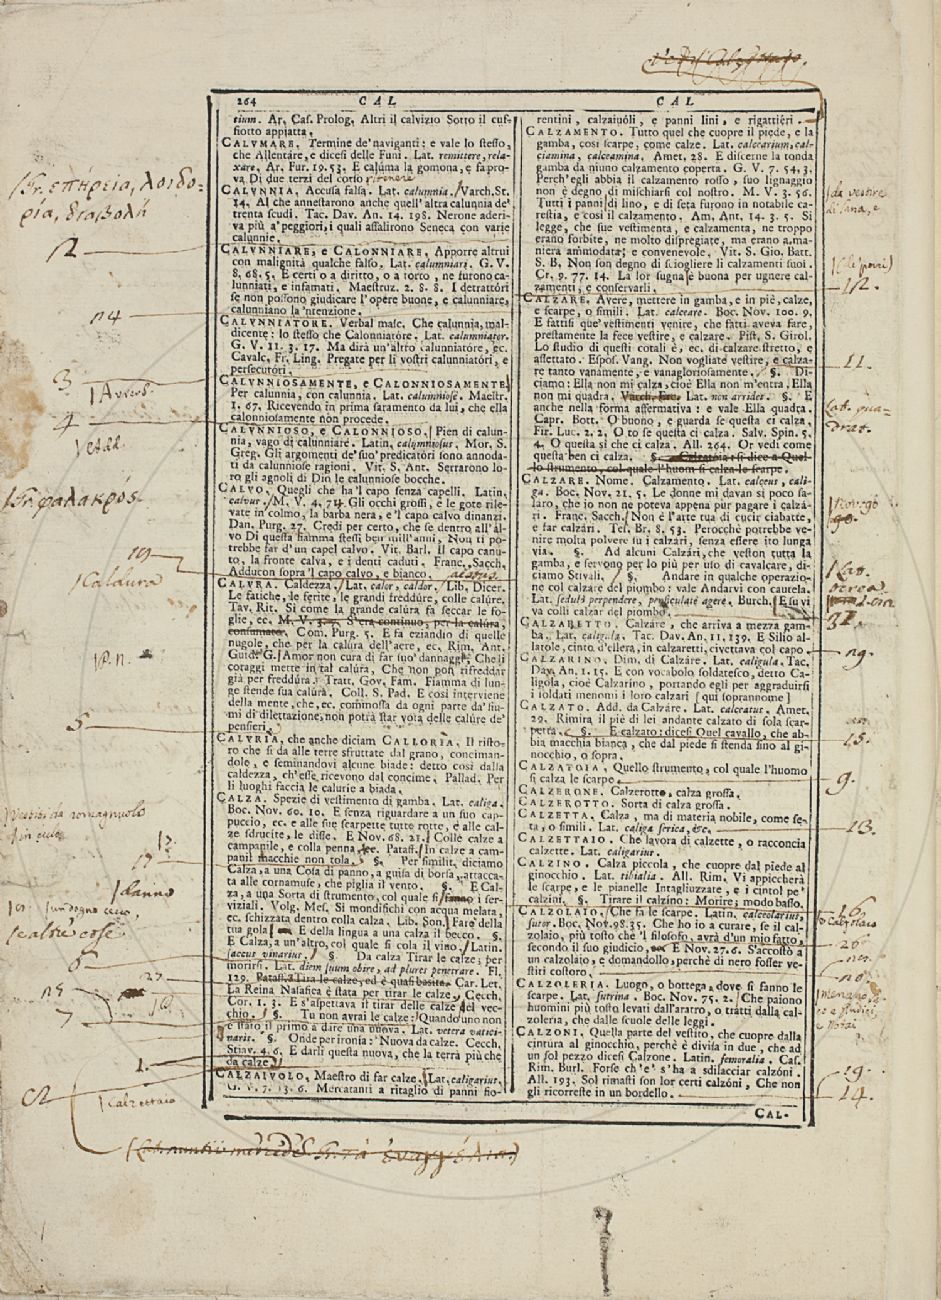 264 CAL CAL
tium. Ar. Cas. Prolog. Altri il calvizio Sotto il cuf-
fiotto appiatta.
CALUMARE. Termine de'naviganti: e vale lo stesso,
che Allentare, e dicesi delle Funi. Lat. remittere, rela-
xare, Ar. Fur. 19. 53. E caluma la gomona, e fa pro-
va Di due terzi del corso
CALUNNIA, Accusa falsa. Lat. calumnia. Varch. St.
14. Al che annestarono anche quell'altra calunnia de'
trenta scudi. Tac. Dav. An. 14. 198. Nerone aderi-
va più a'peggiori, i quali assalirono Seneca con varie
calunnie.
CALUNNIARE, e CALONNIARE, Apporre altrui
con malignità qualche falso. Lat. calumniari. G. V.
8. 68. 5. E certi o a diritto, o a torto, ne furono ca-
lunniati, e infamati. Maestruz. 2. 8. 8. I detrattori
se non possono giudicare l'opere buone, e calunniare,
calunniano la 'ntenzione.
CALUNNIATORE. Verbal masc. Che calunnia, mal-
dicente: lo stesso che Calonniatóre. Lat. calumniator.
G. V. 11. 3. 17. Ma dirà un'altro calunniatóre, ec.
Cavalc. Fr. Ling. Pregate per li vostri calunniatóri, e
persecutóri.
CALUNNIOSAMENTE, e CALONNIOSAMENTE
Per calunnia, con calunnia. Lat. calumniosè. Maestr.
1. 67. Ricevendo in prima saramento da lui, che ella
calonniosamente non procede.
CALUNNIOSO, e CALONNIOSO. Pien di calun-
nia, vago di calunniare. Latin. calumniosus. Mor. S.
Greg. Gli argomenti de'suo'predicatóri sono annoda-
ti da calunniose ragioni. Vit. S. Ant. Serrarono lo-
ro gli agnoli di Dio le calunniose bocche.
CALVO. Quegli che ha'l capo senza capelli. Latin.
calvus. M. V. 4. 74. Gli occhi grossi, e le gote rile-
vate in colmo, la barba nera, e 'l capo calvo dinanzi.
Dan. Purg. 27. Credi per certo, che se dentro all'al-
vo Di questa fiamma stessi ben mill'anni, Non ti po-
trebbe far d'un capel calvo. Vit. Barl. Il capo canu-
to, la fronte calva, e i denti caduti. Franc. Sacch.
Adducon sopra'l capo calvo, e bianco.
CALURA. Caldezza. Lat. calor, caldor. Lib. Dicer.
Le fatiche, le ferite, le grandi freddúre, colle calúre.
Tav. Rit. Si come la grande calúra fa seccar le fo-
glie, ec. M. V. S'era continuo, per la calúra,
consumato. Com. Purg. 5. E fa eziandio di quelle
nugole, che per la calúra dell'aere, ec. Rim. Ant.
Guid. G. Amor non cura di far suo'dannaggi, Che li
coraggi mette in tal calúra, Che non pon rifreddar
già per freddúra. Tratt. Gov. Fam. Fiamma di lun-
ge stende sua calúra. Coll. S. Pad. E così interviene
della mente, che, ec. commossa da ogni parte da'fiu-
mi di dilettazione, non potrà star vota delle calúre de'
pensieri.
CALURIA, che anche diciam CALLORIA. Il risto-
ro che si da alle terre sfruttate dal grano, conciman-
dole, e seminandovi alcune biade: detto così dalla
caldezza, ch'esse ricevono dal concime. Pallad. Per
li luoghi faccia le calurie a biada.
CALZA. Spezie di vestimento di gamba. Lat. caliga.
Boc. Nov. 60. 10. E senza riguardare a un suo cap-
puccio, ec. e alle sue scarpette tutte rotte, e alle cal-
ze sdrucite, le disse. E Nov. 68. 21. Colle calze a
campanile, e colla penna, ec. Pataff. In calze a cam-
panil macchie non tola. §. Per similit. diciamo
Calza, a una Cosa di panno, a guisa di borsa, attacca-
ta alle cornamuse, che piglia il vento. §. E Cal-
za, a una Sorta di strumento, col quale si fanno i ser-
viziali. Volg. Mes. Si mondifichi con acqua melata,
ec. schizzata dentro colla calza. Lib. Son. Fare della
tua gola E della lingua a una calza il becco. §.
E Calza, a un'altro, col quale si cola il vino. Latin.
saccus vinarius. §. Da calza Tirar le calze; per
morirsi. Lat. diem suum obire, ad plures penetrare. Fl.
129. Pataff. 2. Tira le calze, ed è quasi basita. Car. Let.
La Reina Nasafica è stata per tirar le calze. Cecch.
Cor. 1. 3. E s'aspettava il tirar delle calze del vec-
chio. §. Tu non avrai le calze: Quando uno non
è stato il primo a dare una nuova. Lat. vetera vatici-
naris. §. Onde per ironia: Nuova da calze. Cecch.
Stiav. 4. 6. E darli questa nuova, che la terrà più che
da calze.
CALZAIUOLO, Maestro di far calze. Lat. caligarius.
G. V. 7. 13. 6. Mercatanti a ritaglio di panni fio-
rentini, calzaiuóli, e panni lini, e rigattiéri.
CALZAMENTO. Tutto quel che cuopre il piede, e la
gamba, così scarpe, come calze. Lat. calcearium, cal-
ciamina, calceamina. Amet. 28. E discerne la tonda
gamba da niuno calzamento coperta. G. V. 7. 54. 3.
Perch'egli abbia il calzamento rosso, suo lignaggio
non è degno di mischiarsi col nostro. M. V. 3. 56.
Tutti i panni di lino, e di seta furono in notabile ca-
restia, e così il calzamento. Am. Ant. 14. 3. 5. Si
legge, che sue vestimenta, e calzamenta, ne troppo
erano forbite, ne molto dispregiate, ma erano a ma-
niera ammodata; e convenevole. Vit. S. Gio. Batt.
S. B. Non son degno di sciogliere li calzamenti suoi.
Cr. 9. 77. 14. La lor sugna è buona per ugnere cal-
zamenti, e conservarli.
CALZARE. Avere, mettere in gamba, e in piè, calze,
e scarpe, o simili. Lat. calceare. Boc. Nov. 100. 9.
E fattisi que'vestimenti venire, che fatti aveva fare,
prestamente la fece vestire, e calzare. Pist. S. Girol.
Lo studio di questi cotali è, ec. di calzare stretto, e
assettato. Espos. Vang. Non vogliate vestire, e calza-
re tanto vanamente, e vanagloriosamente. §. Di-
ciamo: Ella non mi calza, cioè Ella non m'entra, Ella
non mi quadra. Varch. Erc. Lat. non arridet. §. E
anche nella forma affermativa: e vale Ella quadra.
Capr. Bott. O buono, e guarda se questa ci calza.
Fir. Luc. 2. 2. O to se questa ci calza. Salv. Spin. 5.
4. O questa sì che ci calza. All. 264. Or vedi come
questa ben ci calza. §. Calzatoia: si dice a Quel-
lo strumento, col quale l'huom si calza le scarpe.
CALZARE. Nome. Calzamento. Lat. calceus, cali-
ga. Boc. Nov. 21. 5. Le donne mi davan sì poco sa-
laro, che io non ne poteva appena pur pagare i calzá-
ri. Franc. Sacch. Non è l'arte tua di cucir ciabatte,
e far calzári. Tes. Br. 8. 53. Perocchè potrebbe ve-
nire molta polvere su i calzári, senza essere ito lunga
via. §. Ad alcuni Calzári, che veston tutta la
gamba, e servono per lo più per uso di cavalcare, di-
ciamo Stivali. §. Andare in qualche operazio-
ne col calzare del piombo: vale Andarvi con cautela.
Lat. sedulò perpendere, pensiculatè agere. Burch. E su vi
va colli calzar del piombo.
CALZARETTO. Calzare, che arriva a mezza gam-
ba. Lat. caligula. Tac. Dav. An. 11. 139. E Silio al-
latole, cinto d'ellera, in calzaretti, civettava col capo
CALZARINO. Dim. di Calzáre. Lat. caligula. Tac.
Dav. An. 1. 15. E con vocabolo soldatesco, detto Ca-
ligola, cioè Calzarino, portando egli per aggraduirsi
i soldati menomi i loro calzari [qui soprannome]
CALZATO. Add. da Calzáre. Lat. calceatus. Amet.
29. Rimira il piè di lei andante calzato di sola scar-
petta. §. E calzato: dicesi Quel cavallo, che ab-
bia macchia bianca, che dal piede si stenda sino al gi-
nocchio, o sopra.
CALZATOIA. Quello strumento, col quale l'huomo
si calza le scarpe
CALZERONE. Calzerotto, calza grossa.
CALZEROTTO. Sorta di calza grossa.
CALZETTA. Calza, ma di materia nobile, come se-
ta, o simili. Lat. caliga serica, &c.
CALZETTAIO. Che lavora di calzette, o racconcia
calzette. Lat. caligarius.
CALZINO. Calza piccola, che cuopre dal piede al
ginocchio. Lat. tibialia. All. Rim. Vi appiccherà
le scarpe, e le pianelle Intagliuzzate, e i cintol pe'
calzini. §. Tirare il calzino: Morire; modo basso.
CALZOLAIO, Che fa le scarpe. Latin. calceolarius,
sutor. Boc. Nov. 98. 35. Che ho io a curare, se il cal-
zolaio, più tosto che 'l filosofo, avrà d'un mio fatto,
secondo il suo giudicio, E Nov. 27. 6. S'accostò a
un calzolaio, e domandollo, perchè di nero fosser ve-
stiti costoro
CALZOLERIA. Luogo, o bottega, dove si fanno le
scarpe. Lat. sutrina. Boc. Nov. 75. 2. Che paiono
huomini più tosto levati dall'aratro, o tratti dalla cal-
zoleria, che dalle scuole delle leggi.
CALZONI, Quella parte del vestito, che cuopre dalla
cintura al ginocchio, perchè è divisa in due, che ad
un sol pezzo dicesi Calzone. Latin. femoralia. Cas.
Rim. Burl. Forse ch'e' s'ha a sdilacciar calzóni.
All. 193. Sol rimasti son lor certi calzóni, Che non
gli ricorreste in un bordello.
CAL-
Gr. επήρεια, λοιδο-
ρία, διαβολή
12
14
3
Avverb.
4
Add.
Gr. φαλακρός
10
Caldura
P. n.
5
17
danno
caltre cose
6
27
7
1.
2
Calzettaio
da vestire
di lana, e
12.
11.
Lat. qua-
drat.
Lat.
31
19.
15.
9.
13.
16
26
10.
19.
14.